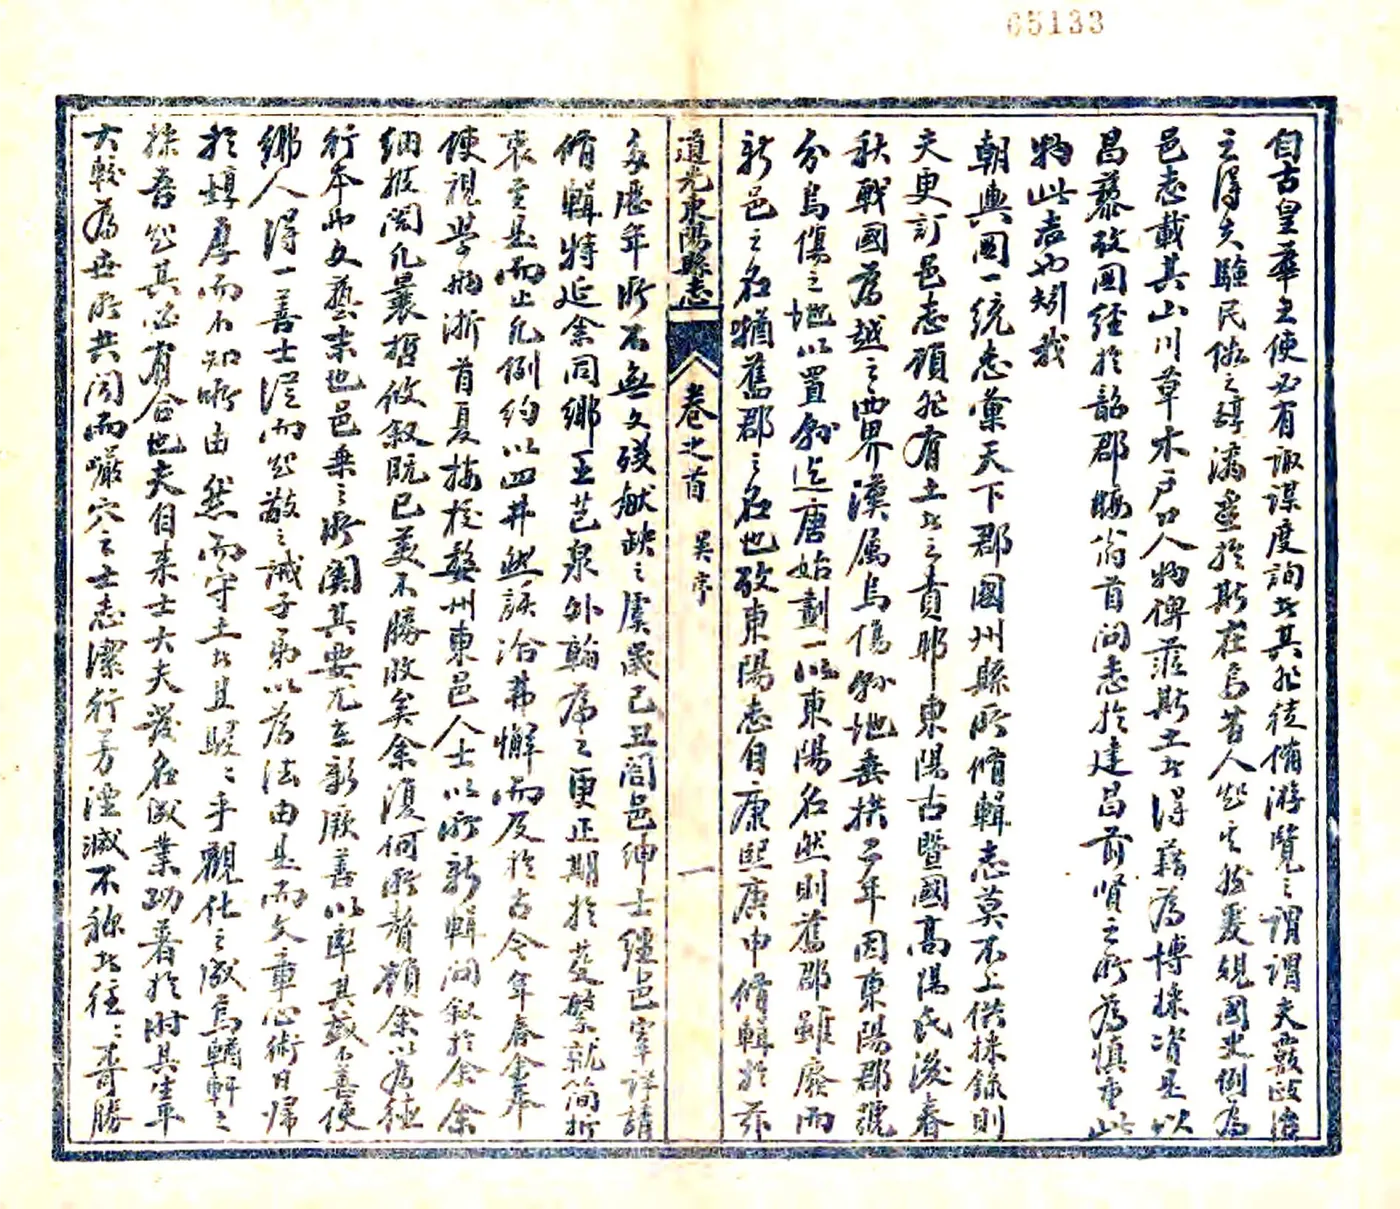 65133
自古皇華之使必有諏謀度詢者其非徒備游覽之謂謂夫覈政治
之得失驗民俗之醇漓重於斯在焉昔人起之於爰規國史例為
邑志載其山川草木戶口人物俾蒞斯土者得藉為博採資是以
昌黎攷圖經於韶郡晦翁首問志於建昌前賢之所為慎重此
物此志也矧我
朝輿圖一統志彙天下郡國州縣所脩輯志莫不上供採錄則
夫更訂邑志顧非有土者之責耶東陽古暨國高陽氏後春
秋戰國為越之西界漢屬烏傷縣地垂拱二年因東陽郡號
分烏傷之地以置縣迄唐始劃一以東陽名然則舊郡雖廢而
新邑之名猶舊郡之名也攷東陽志自康熙庚申脩輯於茲
道光東陽縣志
卷之首 吳序
一
多歷年所不無文殘獻缺之虞歲己丑闔邑紳士繮邑宰詳請
脩輯特延余同鄉王芑泉外翰為之更正期於芟繁就簡折
衷至是而止凡例約以四井然該洽弗懈而及於古今年春余奉
使視學兩浙首夏按校婺州東邑人士以所新輯問叙於余余
細披閱凡曩哲攸叙既已美不勝收矣余復何所贅顧余以為德
行本也文藝末也邑乘之所關其要尤在彰厥善以率其或不善使
鄉人得一善士從而起敬之誡子弟以為法由是而文章心術日歸
於醇厚而不知所由然而守土者且熙熙乎觀化之成焉輶軒之
採吾知其必有合也夫自來士大夫發名成業功著於時其生平
大較為世所共聞而巖穴之士志潔行芳湮滅不稱者往往奇勝